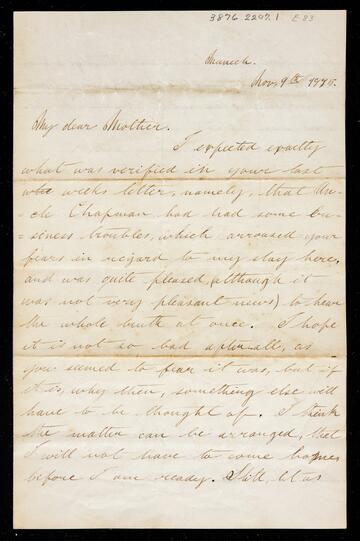 3876.2207.1 E83
Munich.
Nov. 9th 1875.
My dear Mother.
I expected exactly
what was verified in your last
weeks letter, namely, that Un-
-cle Chapman had had some bu-
-siness troubles, which arroused your
fears in regard to my stay here,
and was quite pleased, (although it
was not very pleasant news) to hear
the whole truth at once. I hope
it is not so bad after all, as
you seemed to fear it was, but if
it is, why then, something else will
have to be thought of. I think
the matter can be arranged, that
I will not have to come home
before I am ready. Still, let us